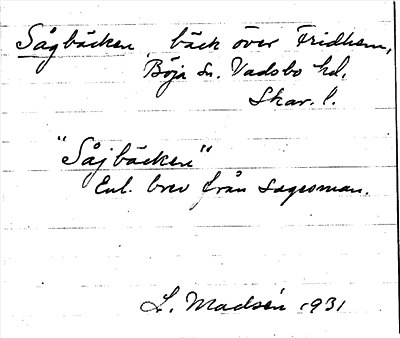 Sågbäcken, bäck över Fridhem,
Böja sn. Vadsbo hd.
Skar. l.
"Såjbäcken"
Enl. brev från sagesman.
L. Madsén 1931